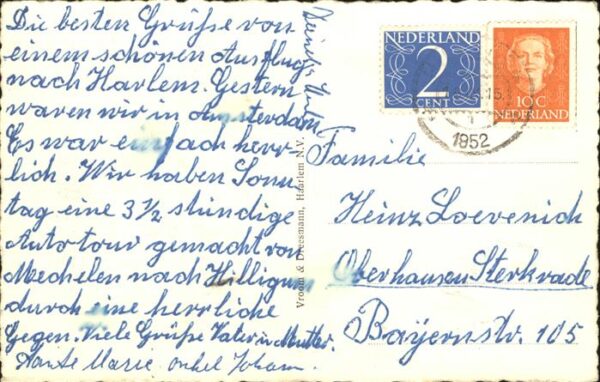 Die besten Grüße von
einem schönen Ausflug
nach Harlem. Gestern
waren wir in Amsterdam
Es war einfach herr-
lich. Wir haben Sonn
tag eine 3 1/2 stündige
Autotour gemacht von
Mechelen nach Hilligum
durch eine herrliche
Gegen. Viele Grüße Vater u. Mutter.
Tante Marie, onkel Johann.
Vroom & Dreesmann, Haarlem N.V.
NEDERLAND
2
CENT
10C
NEDERLAND
1952
Familie
Heinz Loevenich
Oberhausen Sterkrade
Bayernstr. 105